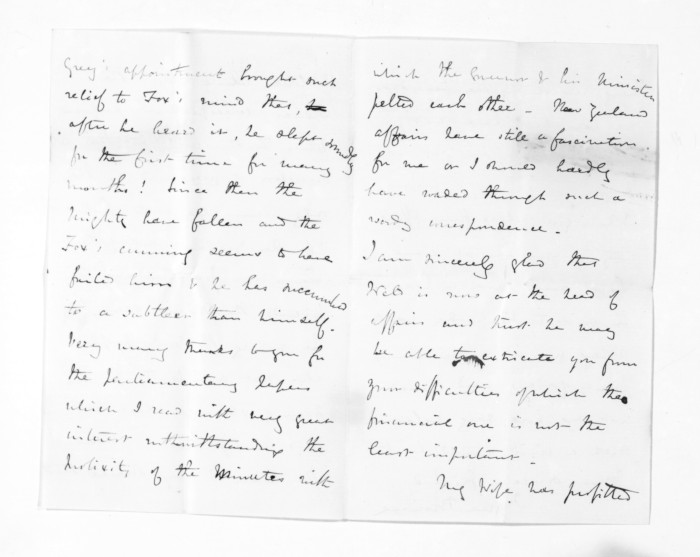 Grey's appointment brought such
relief to Fox's mind that,
after he heard it, he slept soundly
for the first time for many
months! Since then the
Mighty have fallen and the
Fox's cunning seems to have
failed him & he has succumbed
to a subtleer than himself.
Very many thanks to you for
the parliamentary papers
which I read with very great
interest notwithstanding the
prolixity of the Minutes with
which the Governor & his Ministers
pelted each other - New Zealand
affairs have still a fascination
for me or I should hardly
have waded through such a
wordy correspondence -
I am sincerely glad that
Weld is now at the head of
affairs and trust he may
be able to extricate you from
your difficulties of which the
financial one is not the
least important -
My Wife has profitted